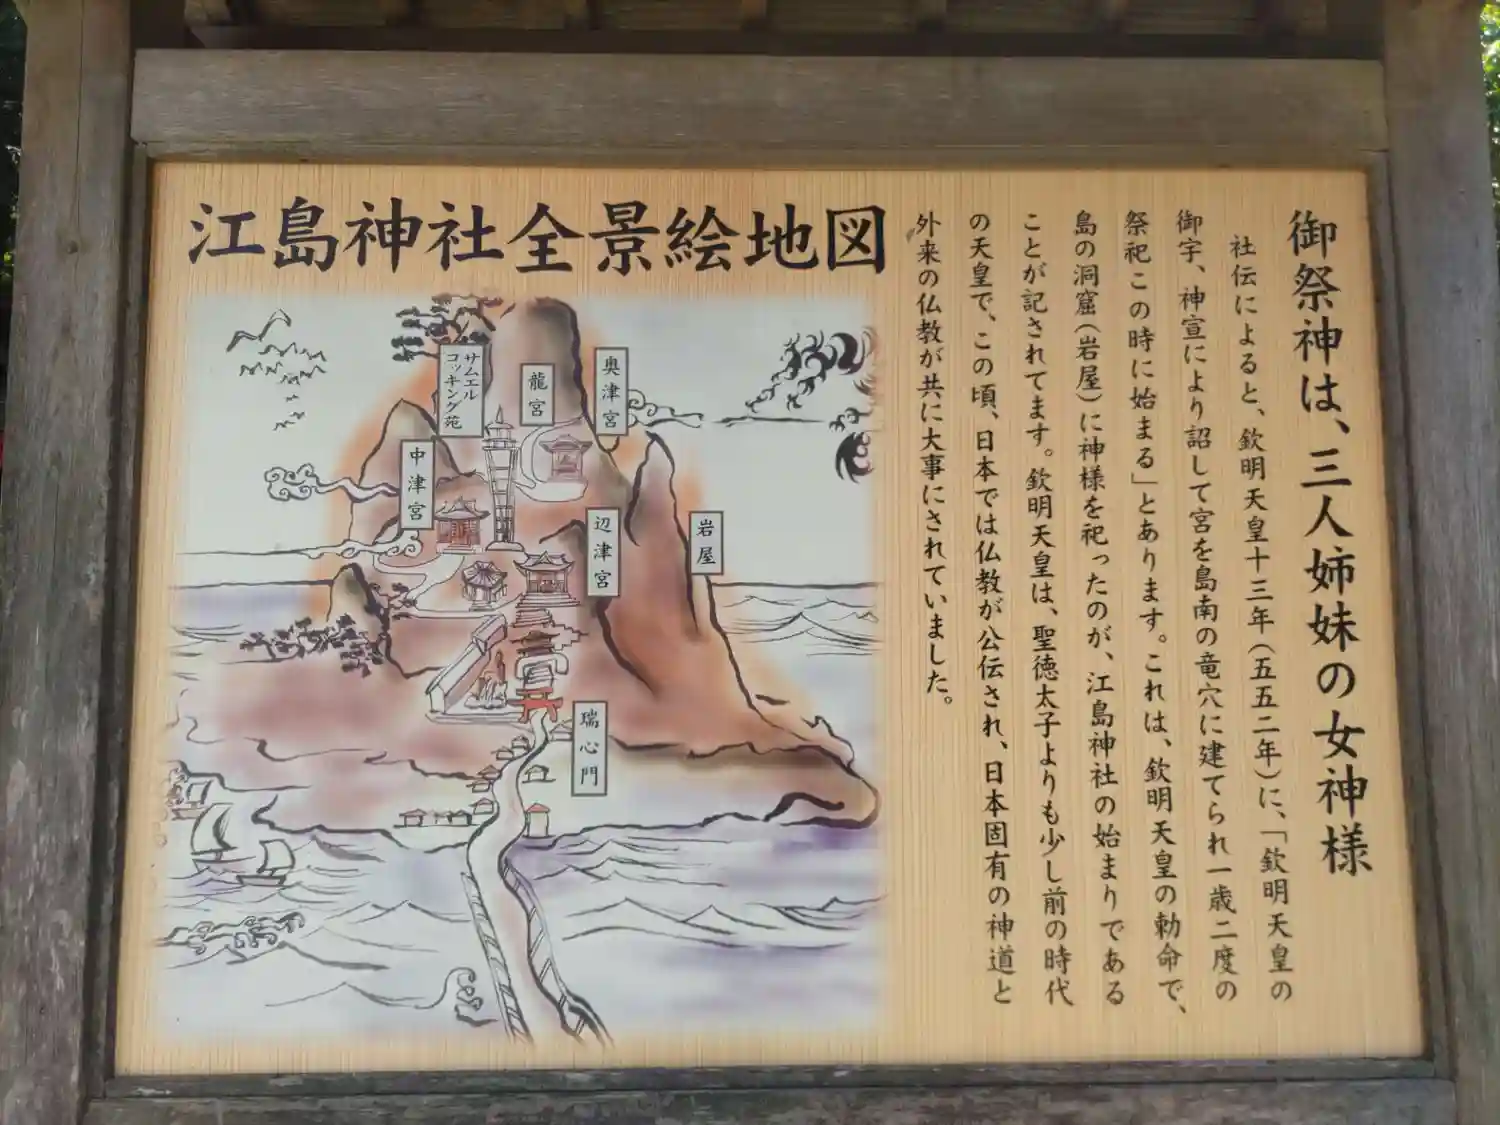 江島神社全景絵地図
御祭神は、三人姉妹の女神様
社伝によると、欽明天皇十三年(五五二年)に、「欽明天皇の
御宇、神宣により詔して宮を島南の竜穴に建てられ一歳二度の
祭祀この時に始まる」とあります。これは、欽明天皇の勅命で、
島の洞窟(岩屋)に神様を祀ったのが、江島神社の始まりである
ことが記されてます。欽明天皇は、聖徳太子よりも少し前の時代
の天皇で、この頃、日本では仏教が公伝され、日本固有の神道と
外来の仏教が共に大事にされていました。
奥津宮
龍宮
サムエル
コッキング苑
中津宮
辺津宮
岩屋
瑞心門